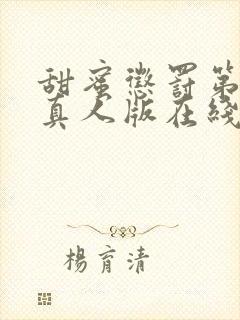 甜蜜懲罰第
真人版在綫
楊育清